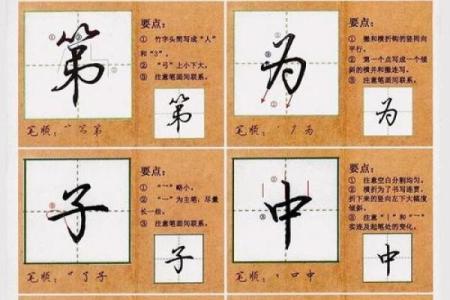 第
要点：
① 竹字头简写成“人”
和“3”。
② “弓”上小下大。
③ 注意笔画间联系。
第
笔顺：
第
为
要点：
① 撇和横折钩的竖同向
平行。
② 第一个点写成一个倾
斜的横并和撇连写。
③ 注意笔画间联系。
为
笔顺：
为
子
要点：
① “㇇”略小。
② “一”为主笔，尽量
长一些。
③ 注意笔画间联系。
子
笔顺：
了子
中
要点：
① 注意空白分割均匀。
② 横折为了书写连贯，
折下来的竖向左下大幅度
倾斜。
③ 注意“丨”和“一”
实连及起笔处的变化。
中
笔顺：
口中